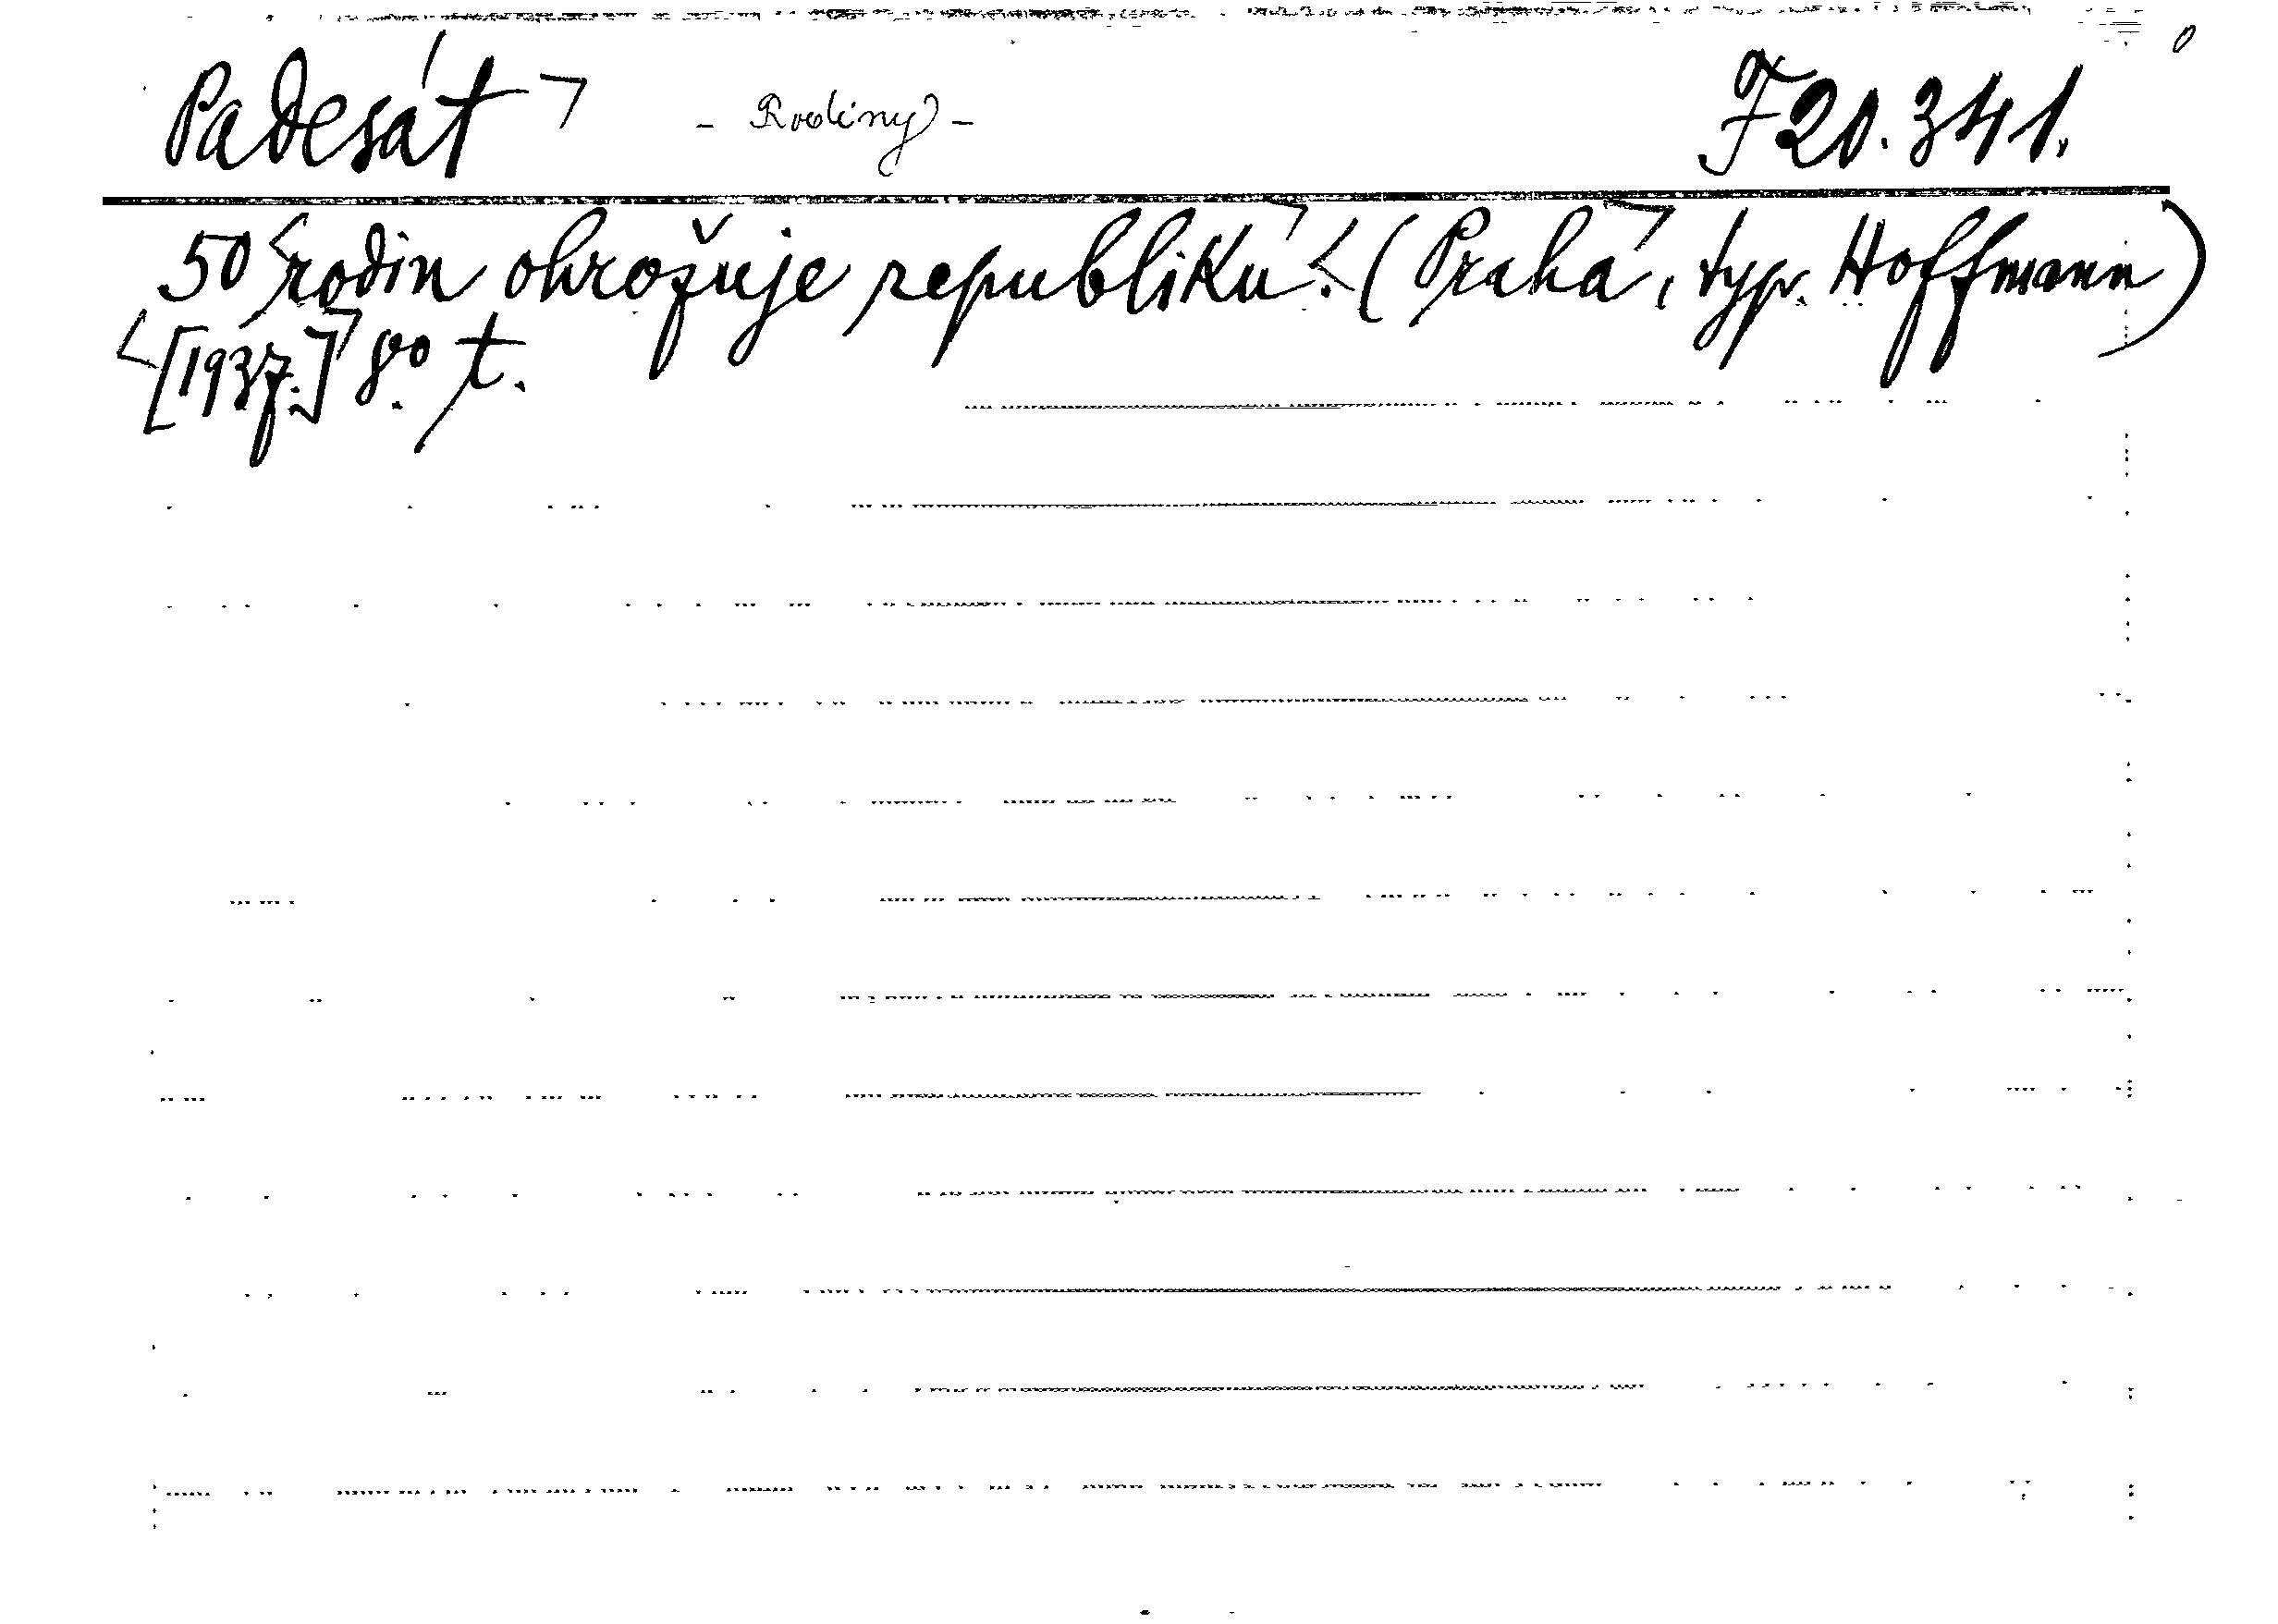 Padesát - Rodiny - F 20.341.
50 rodin ohrožuje republiku. (Praha, typ. Hoffmann)
[1937.] 8º t.